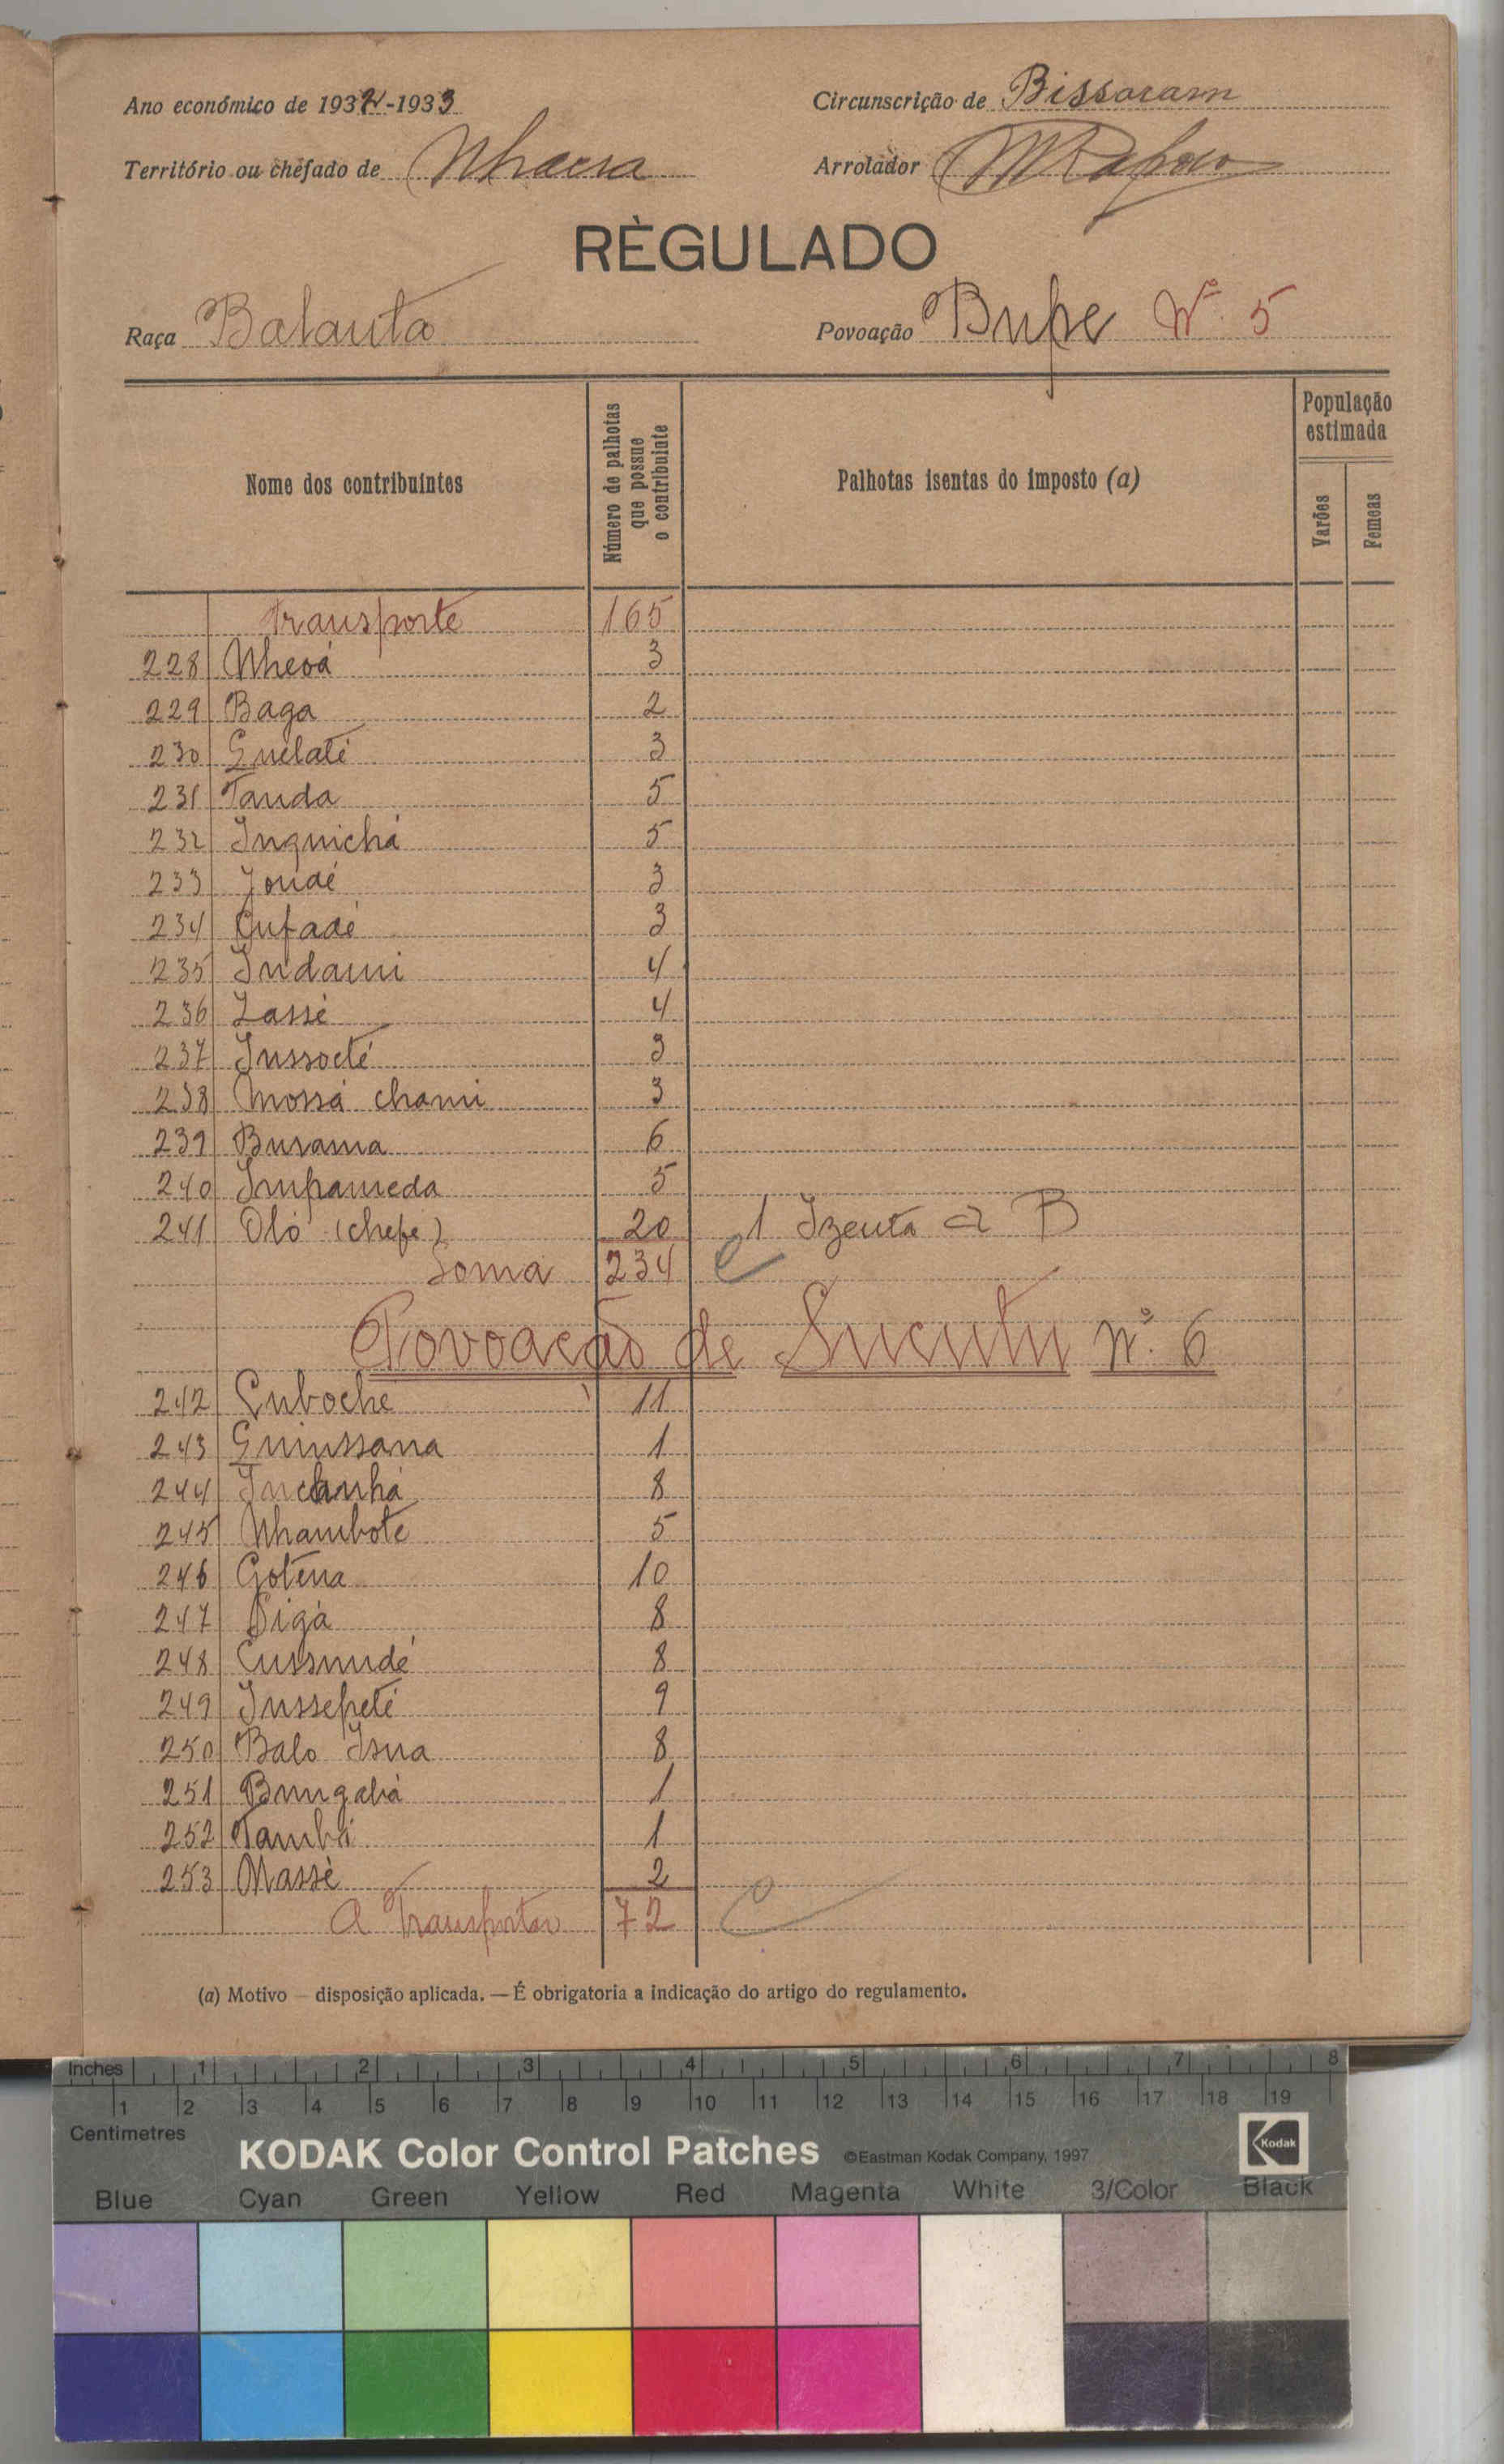 Ano económico de 1932-1933
Circunscrição de Bissoram
Território ou chefado de Nhacra
Arrolador
RÈGULADO
Raça Balanta
Povoação Bupe Nº 5
Nome dos contribuintes
Número de palhotas que possue o contribuinte
Palhotas isentas do imposto (a)
População estimada
Varões
Femeas
Transporte 165
228 Nhevá 3
229 Baga 2
230 Guelaté 3
231 Tanda 5
232 Inquichá 5
233 Jondé 3
234 Cufadé 3
235 Indami 4
236 Lassé 4
237 Inssoclé 3
238 Mossá chami 3
239 Burama 6
240 Impameda 5
241 Oló (chefe) 20 1 Izenta a B
Soma 234
Povoação de Sucutu nº 6
242 Cuboche 11
243 Guinssana 1
244 Inchanhá 8
245 Nhambote 5
246 Gotena 10
247 Digá 8
248 Cussundé 8
249 Inssepeté 9
250 Balo Isna 8
251 Bungabá 1
252 Tambá 1
253 Massé 2
A Transportar 72
(a) Motivo — disposição aplicada. — É obrigatoria a indicação do artigo do regulamento.
Inches 1 2 3 4 5 6 7 8
1 2 3 4 5 6 7 8 9 10 11 12 13 14 15 16 17 18 19
Centimetres
KODAK Color Control Patches ©Eastman Kodak Company, 1997 Kodak
Blue Cyan Green Yellow Red Magenta White 3/Color Black